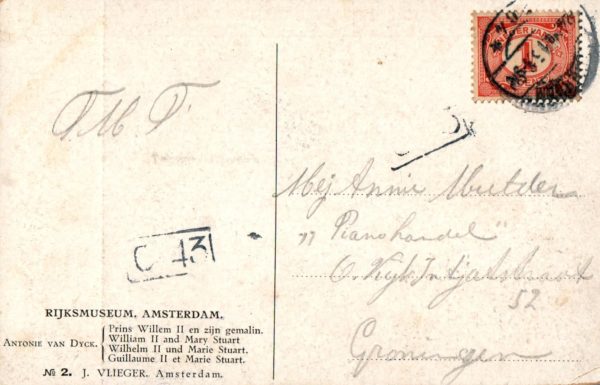 T. M. T.
C 43
RIJKSMUSEUM. AMSTERDAM.
ANTONIE VAN DYCK.
Prins Willem II en zijn gemalin.
William II and Mary Stuart
Wilhelm II und Marie Stuart.
Guillaume II et Marie Stuart.
№ 2. J. VLIEGER. Amsterdam.
1
Mej Annie Mulder
„Pianohandel"
O. Kijk In 't jatstraat
52
Groningen